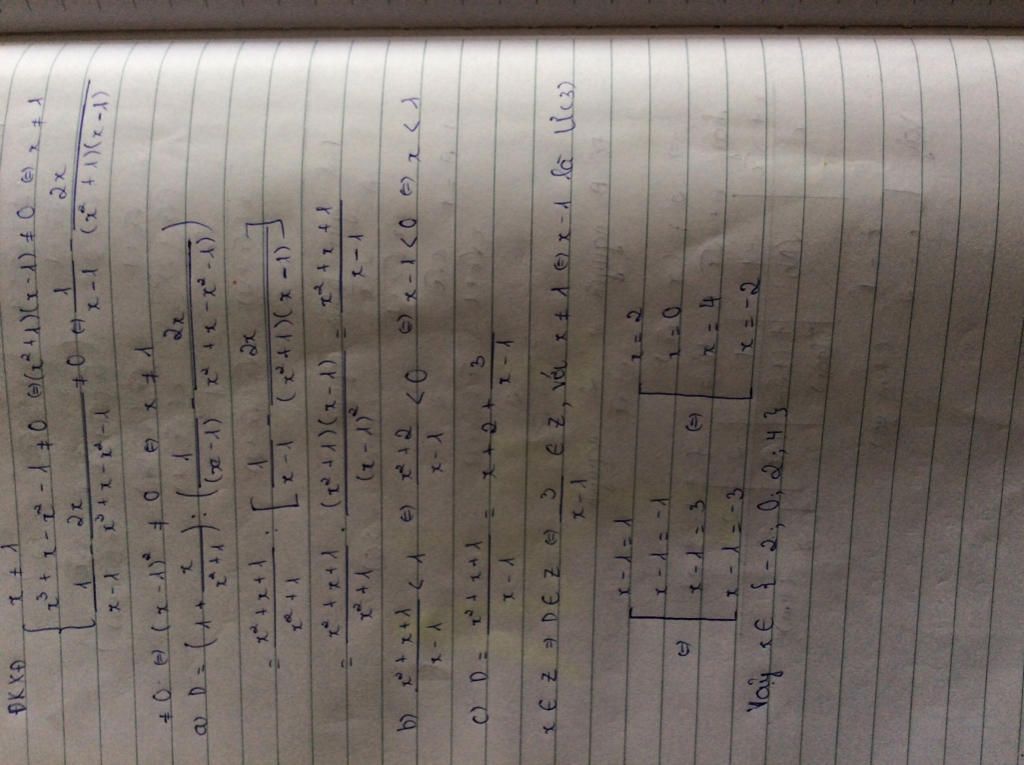 ĐKXĐ
x ≠ 1
x³ + x - x² - 1 ≠ 0 ⇔ (x² + 1)(x - 1) ≠ 0 ⇔ x ≠ 1
1/(x - 1) - 2x/(x³ + x - x² - 1) ≠ 0 ⇔ 1/(x - 1) - 2x/((x² + 1)(x - 1))
≠ 0 ⇔ (x - 1)² ≠ 0 ⇔ x ≠ 1
a) D = (1 + x/(x² + 1)) : (1/(x - 1) - 2x/(x² + x - x² - 1))
= (x² + x + 1)/(x² + 1) : [1/(x - 1) - 2x/((x² + 1)(x - 1))]
= (x² + x + 1)/(x² + 1) · ((x² + 1)(x - 1))/(x - 1)² = (x² + x + 1)/(x - 1)
b) (x² + x + 1)/(x - 1) < 1 ⇔ (x² + 2)/(x - 1) < 0 ⇔ x - 1 < 0 ⇔ x < 1
c) D = (x² + x + 1)/(x - 1) = x + 2 + 3/(x - 1)
x ∈ Z ⇒ D ∈ Z ⇔ 3/(x - 1) ∈ Z, với x ≠ 1 ⇔ x - 1 là Ư(3)
x - 1 = 1 x = 2
⇔ x - 1 = -1 ⇔ x = 0
x - 1 = 3 x = 4
x - 1 = -3 x = -2
Vậy x ∈ {-2; 0; 2; 4}